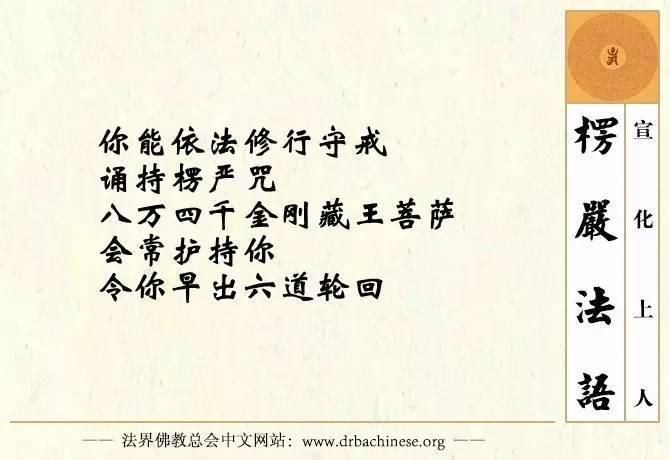 你能依法修行守戒
诵持楞严咒
八万四千金刚藏王菩萨
会常护持你
令你早出六道轮回
楞嚴法語
宣化上人
—— 法界佛教总会中文网站：www.drbachinese.org ——